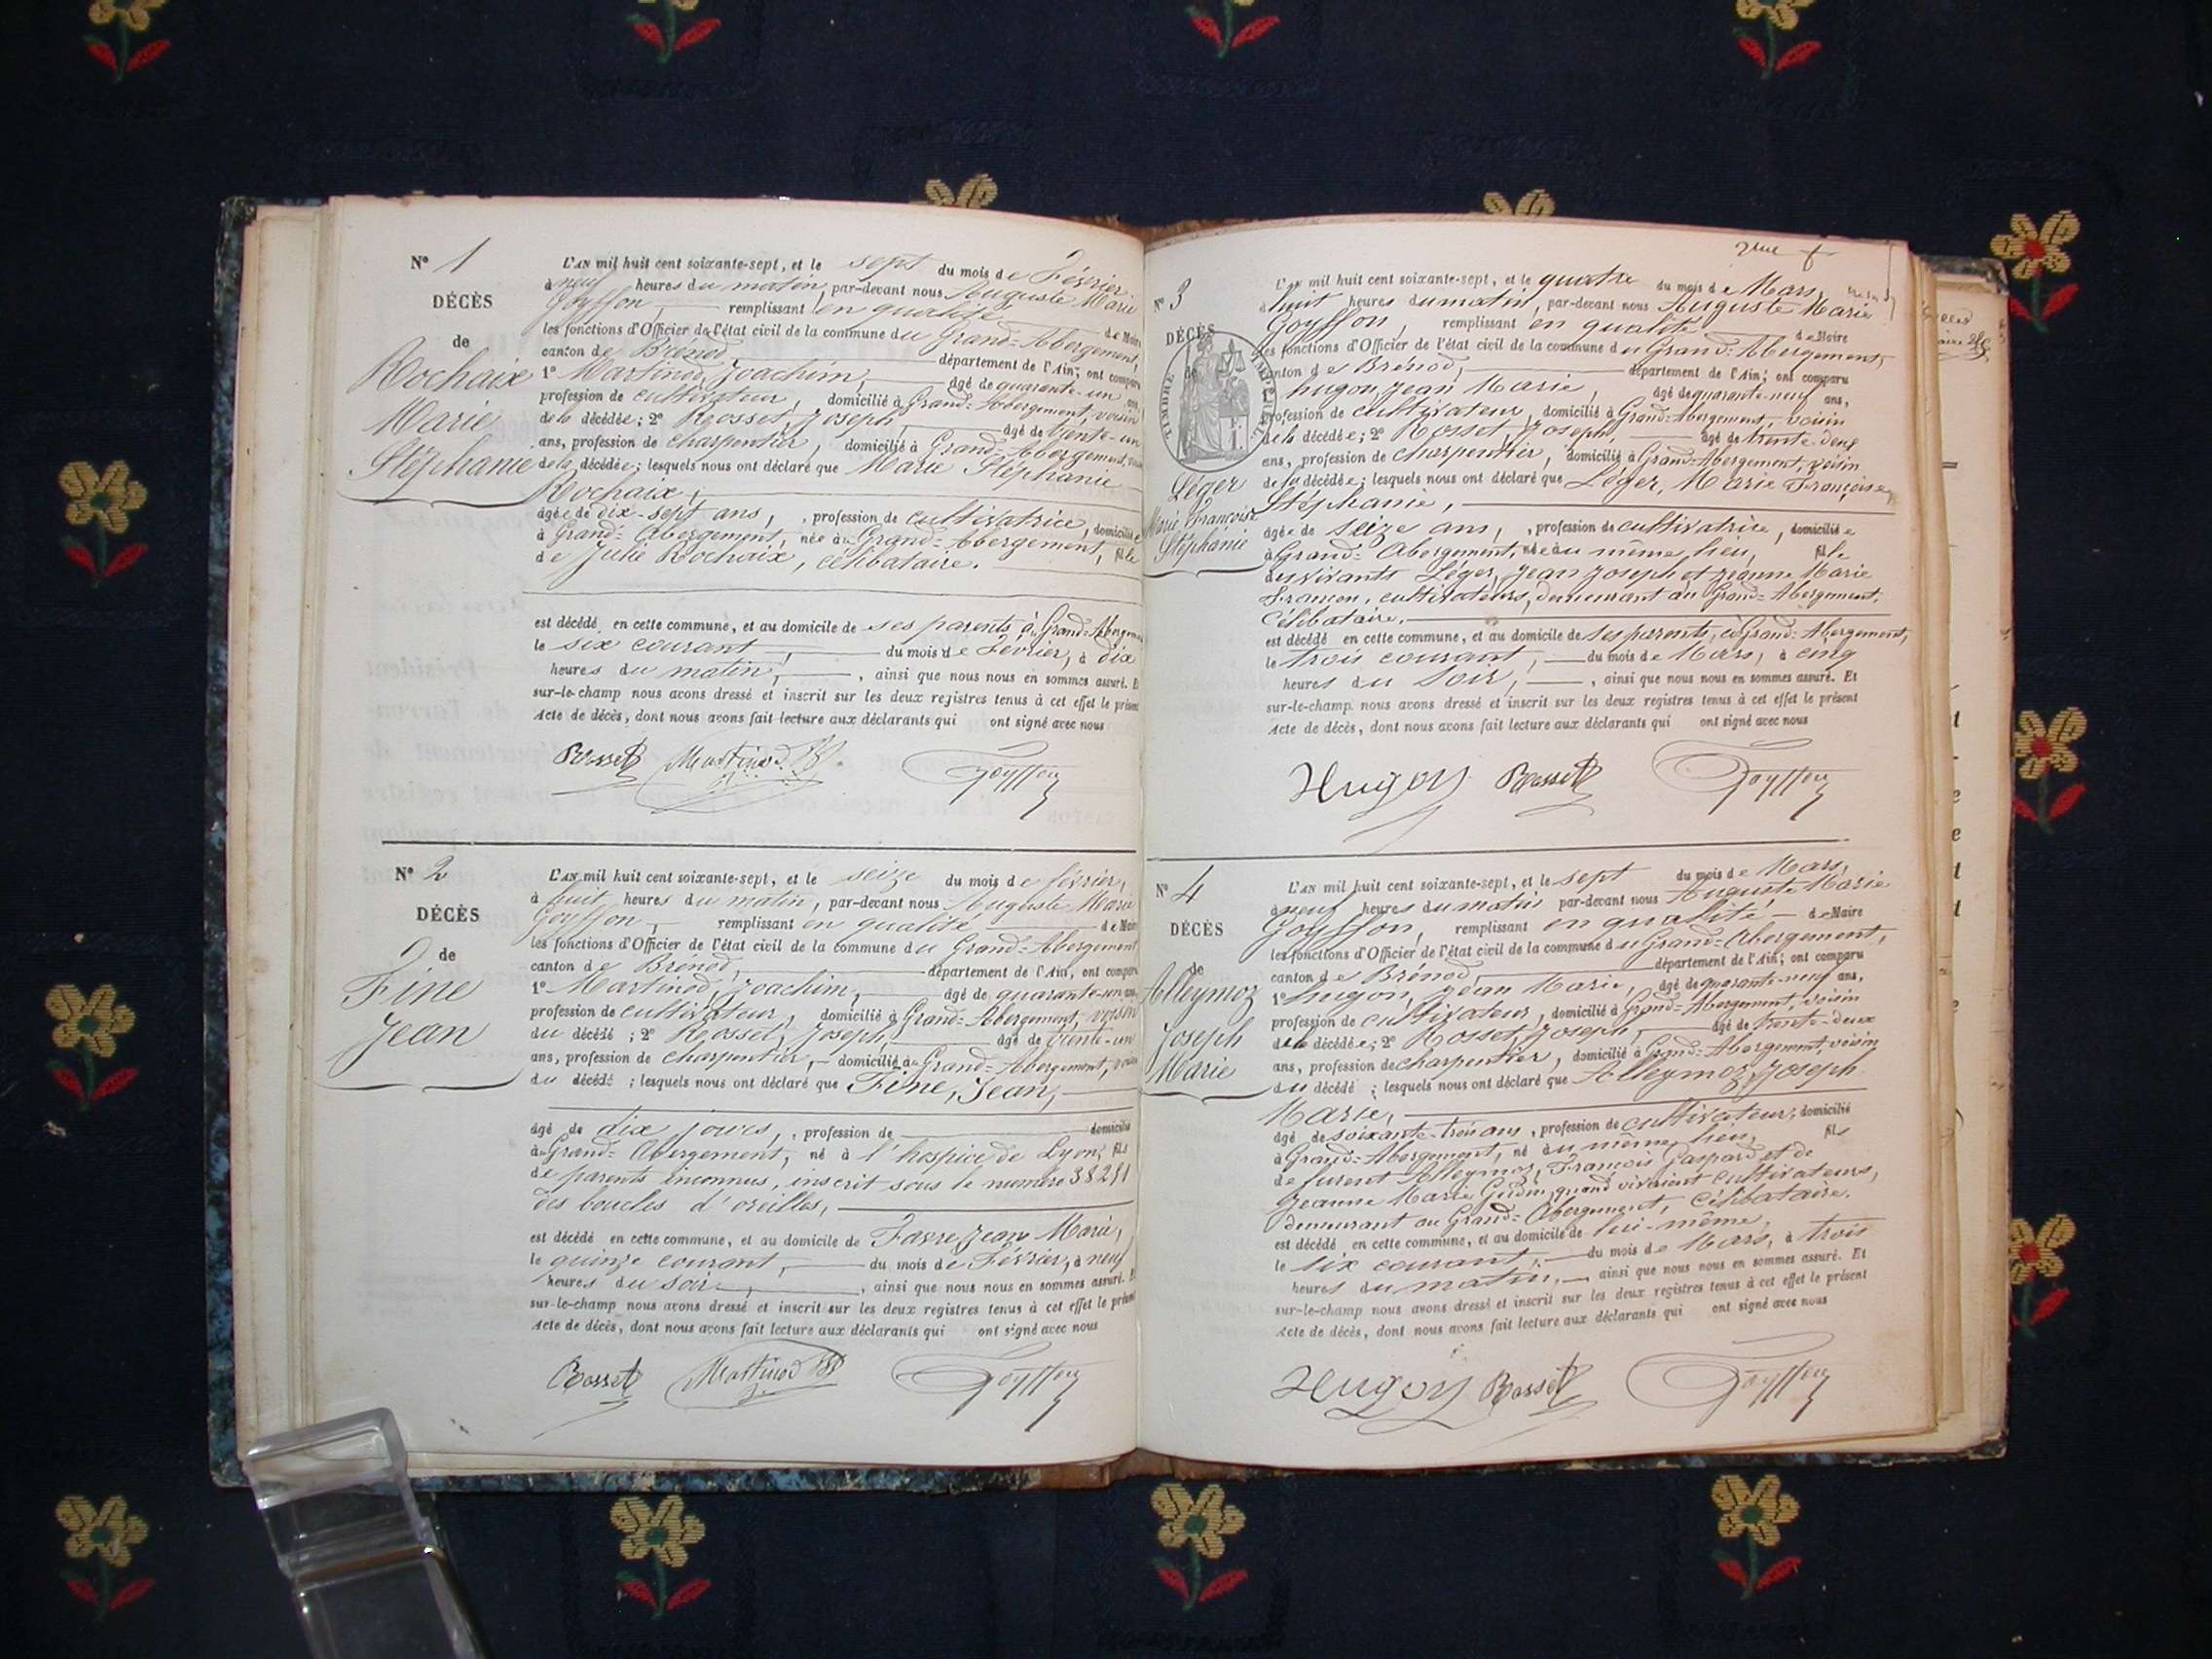 N° 1
DÉCÈS
de
Rochaix
Marie
Stéphanie
L'AN mil huit cent soixante-sept, et le sept du mois de Février
à neuf heures du matin, par-devant nous Auguste Marie
Goyffon, remplissant en qualité de Maire
les fonctions d'Officier de l'état civil de la commune du Grand-Abergement,
canton de Brénod, département de l'Ain; ont comparu
1° Martinod, Joachim, âgé de quarante-un ans,
profession de cultivateur, domicilié à Grand-Abergement, voisin
de la décédée; 2° Rosset, Joseph, âgé de trente-un
ans, profession de charpentier, domicilié à Grand-Abergement, voisin
de la décédée; lesquels nous ont déclaré que Marie Stéphanie
Rochaix,
âgée de dix-sept ans, , profession de cultivatrice, domiciliée
à Grand-Abergement, née à Grand-Abergement, fille
de Julie Rochaix, célibataire.
est décédé en cette commune, et au domicile de ses parents à Grand-Abergement
le six courant, du mois de Février, à dix
heures du matin, , ainsi que nous nous en sommes assuré. Et
sur-le-champ nous avons dressé et inscrit sur les deux registres tenus à cet effet le présent
Acte de décès, dont nous avons fait lecture aux déclarants qui ont signé avec nous
Rosset Martinod Goyffon
N° 2
DÉCÈS
de
Fine
Jean
L'AN mil huit cent soixante-sept, et le seize du mois de février,
à huit heures du matin, par-devant nous Auguste Marie
Goyffon, remplissant en qualité de Maire
les fonctions d'Officier de l'état civil de la commune du Grand-Abergement
canton de Brénod, département de l'Ain, ont comparu
1° Martinod, Joachim, âgé de quarante-un ans,
profession de cultivateur, domicilié à Grand-Abergement, voisin
du décédé; 2° Rosset, Joseph, âgé de trente-un
ans, profession de charpentier, domicilié à Grand-Abergement, voisin
du décédé; lesquels nous ont déclaré que Fine, Jean,
âgé de dix jours, , profession de domicilié
à Grand-Abergement, né à l'hospice de Lyon, fils
de parents inconnus, inscrit sous le numéro
des boucles d'oreilles,
est décédé en cette commune, et au domicile de Favre Jean Marie,
le quinze courant, du mois de Février, à neuf
heures du soir, , ainsi que nous nous en sommes assuré. Et
sur-le-champ nous avons dressé et inscrit sur les deux registres tenus à cet effet le présent
Acte de décès, dont nous avons fait lecture aux déclarants qui ont signé avec nous
Rosset Martinod Goyffon
N° 3
DÉCÈS
de
TIMBRE IMPÉRIAL
Léger
Marie Françoise
Stéphanie
L'AN mil huit cent soixante-sept, et le quatre du mois de Mars,
à huit heures du matin, par-devant nous Auguste Marie
Goyffon, remplissant en qualité de Maire
les fonctions d'Officier de l'état civil de la commune du Grand-Abergement,
canton de Brénod, département de l'Ain; ont comparu
1° hugon, Jean Marie, âgé de quarante-neuf ans,
profession de cultivateur, domicilié à Grand-Abergement, voisin
de la décédée; 2° Rosset, Joseph, âgé de trente-deux
ans, profession de charpentier, domicilié à Grand-Abergement, voisin
de la décédée; lesquels nous ont déclaré que Léger, Marie Françoise,
Stéphanie,
âgée de seize ans, , profession de cultivatrice, domiciliée
à Grand-Abergement, née au même lieu, fille
des vivants Léger, Jean Joseph et Jeanne Marie
cultivateurs, demeurant au Grand-Abergement.
Célibataire.
est décédé en cette commune, et au domicile de ses parents, à Grand-Abergement,
le trois courant, du mois de Mars, à cinq
heures du Soir, , ainsi que nous nous en sommes assuré. Et
sur-le-champ nous avons dressé et inscrit sur les deux registres tenus à cet effet le présent
Acte de décès, dont nous avons fait lecture aux déclarants qui ont signé avec nous
Hugon Rosset Goyffon
N° 4
DÉCÈS
de
Alleymoz
Joseph
Marie
L'AN mil huit cent soixante-sept, et le sept du mois de Mars,
à neuf heures du matin par-devant nous Auguste Marie
Goyffon, remplissant en qualité de Maire
les fonctions d'Officier de l'état civil de la commune du Grand-Abergement,
canton de Brénod, département de l'Ain; ont comparu
1° hugon, Jean Marie, âgé de quarante-neuf ans,
profession de cultivateur, domicilié à Grand-Abergement, voisin
de la décédée; 2° Rosset, Joseph, âgé de trente-deux
ans, profession de charpentier, domicilié à Grand-Abergement, voisin
du décédé; lesquels nous ont déclaré que Alleymoz, Joseph
Marie,
âgé de soixante-trois ans, profession de cultivateur, domicilié
à Grand-Abergement, né au même lieu, fils
de furent Alleymoz, François Gaspard et de
Jeanne Marie quand vivaient cultivateurs,
demeurant au Grand-Abergement, Célibataire.
est décédé en cette commune, et au domicile de lui-même,
le six courant, du mois de Mars, à trois
heures du matin, ainsi que nous nous en sommes assuré. Et
sur-le-champ nous avons dressé et inscrit sur les deux registres tenus à cet effet le présent
Acte de décès, dont nous avons fait lecture aux déclarants qui ont signé avec nous
Hugon Rosset Goyffon